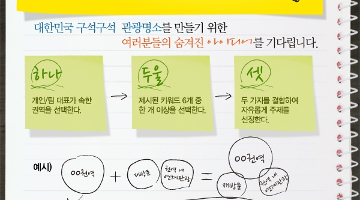 대한민국 구석구석 관광명소를 만들기 위한
여러분들의 숨겨진 아이디어를 기다립니다.
하나
개인/팀 대표가 속한
권역을 선택한다.
두울
제시된 키워드 6개 중
한 개 이상을 선택한다.
셋
두 가지를 결합하여
자유롭게 주제를
선정한다.
예시)
00권역
+
=
00권역